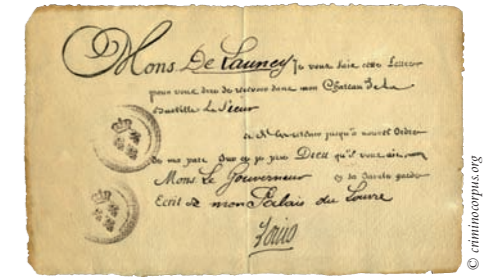 Mons De Launey Je vous faie cette Lettre
pour vous dire de recevoir dans mon Chateau De La
Bastille Le Sieur
et de l'y retenir jusqu'à nouvel Ordre
De ma part Sur ce je prie Dieu qu'il vous ait
Mons Le Gouverneur en sa Sainte garde
Ecrit A mon Palais du Louvre
Louis
© criminocorpus.org